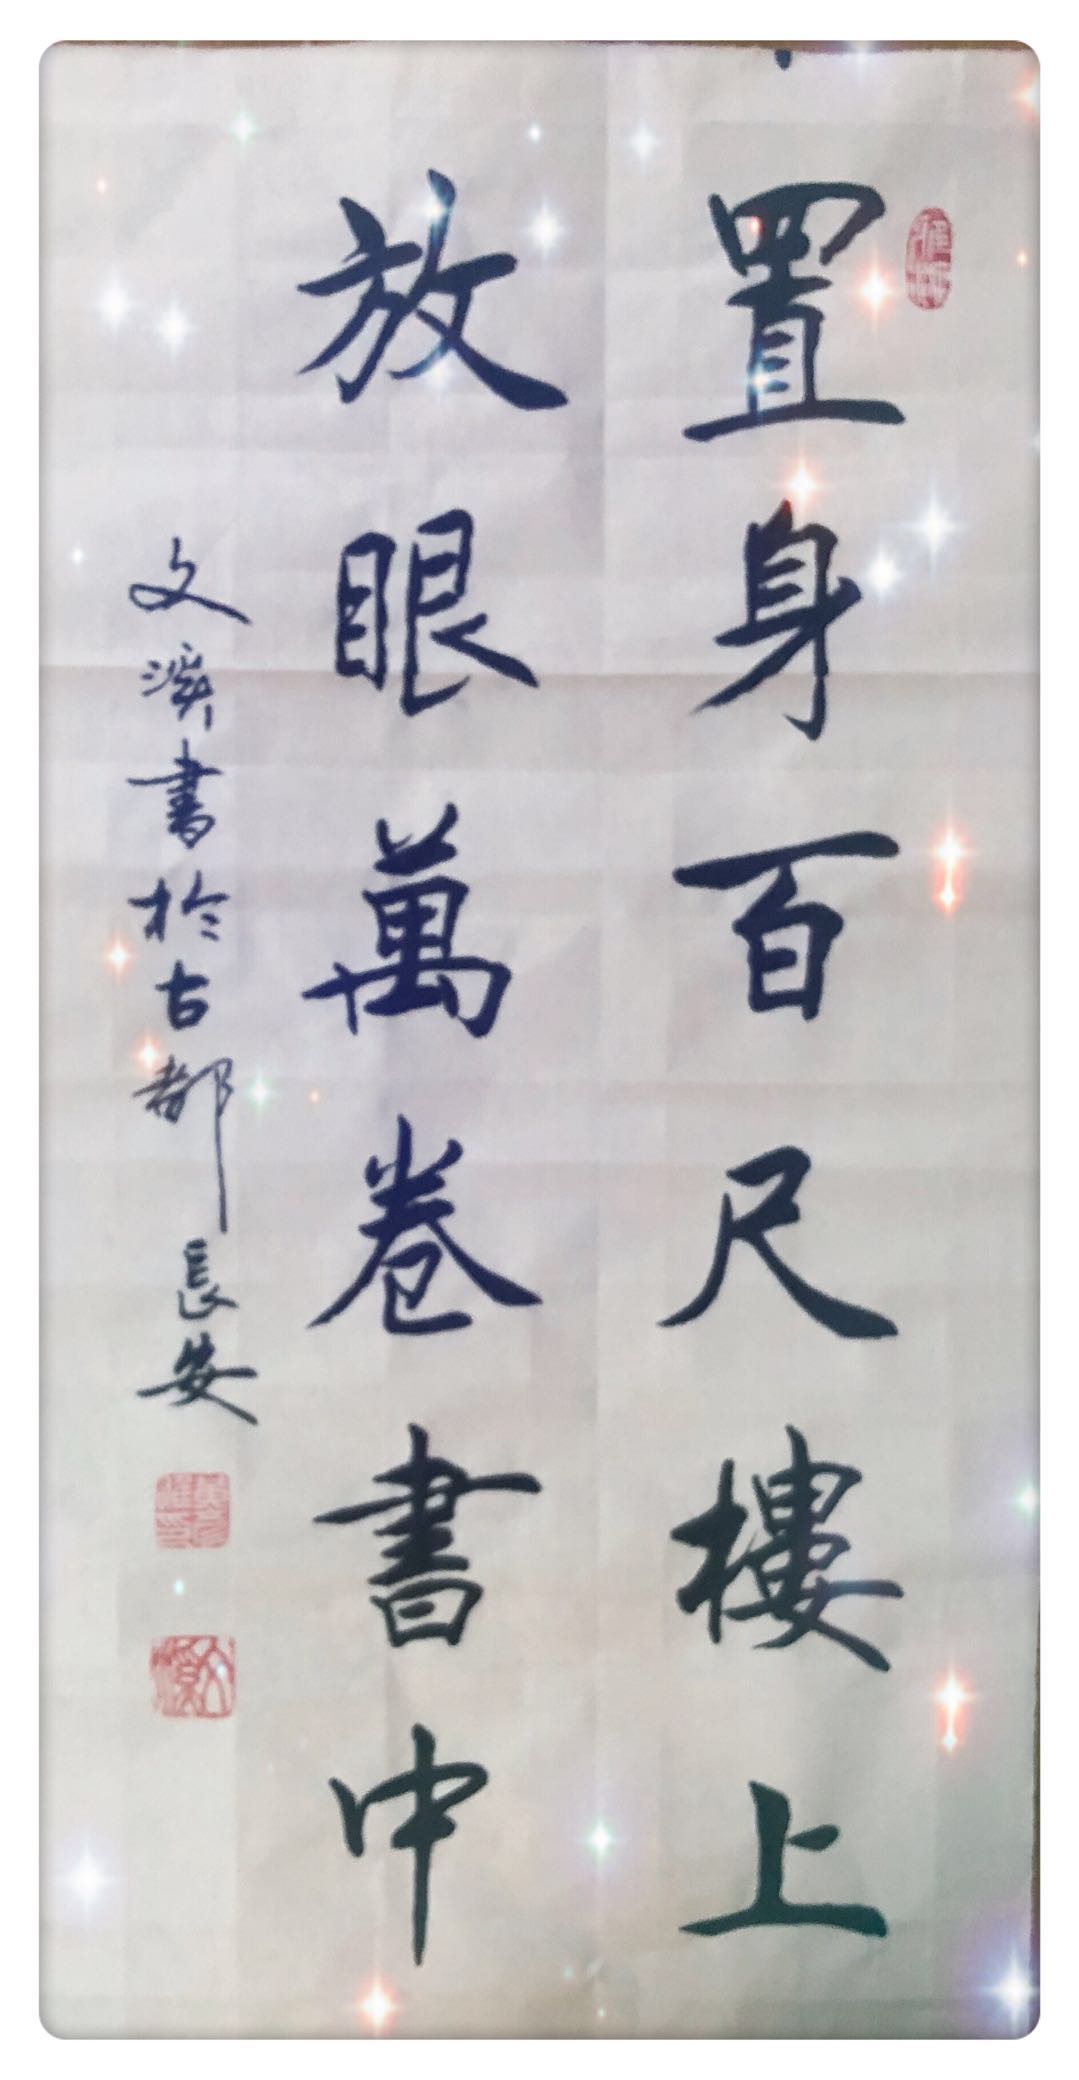 置身百尺樓上
放眼萬卷書中
文溪書於古都長安